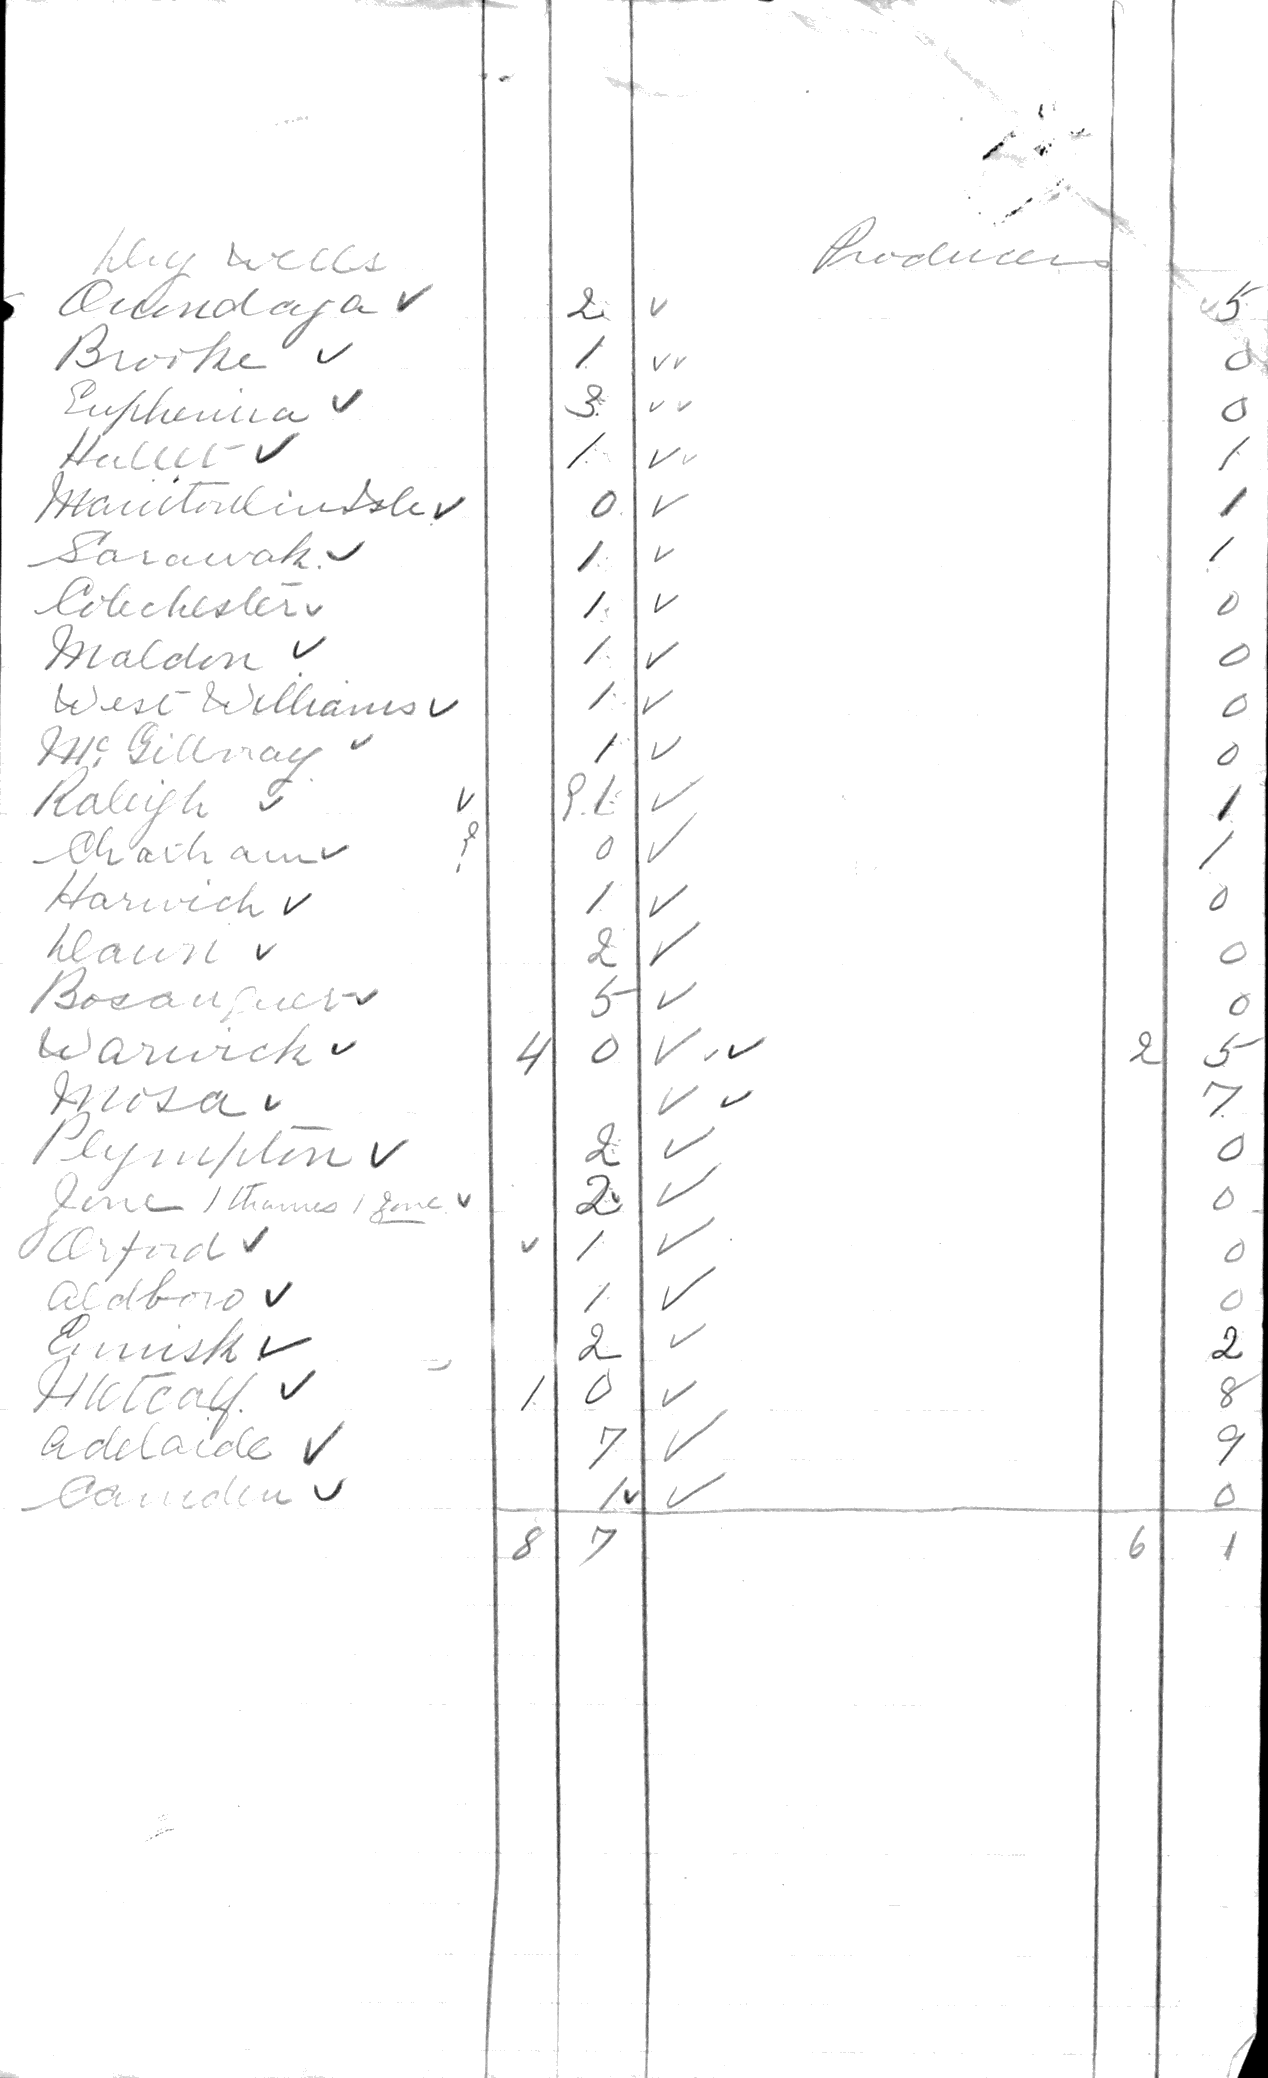 Dry Wells Producers
Onondaga ✓ 2 ✓ ✓ 5
Brooke ✓ 1 ✓✓ 0
Euphemia ✓ 3 ✓✓ 0
Hallet ✓ 1 ✓✓ 1
Manitoulin Isle ✓ 0 ✓ 1
Sarawak ✓ 1 ✓ 1
Colechester ✓ 1 ✓ 0
Maldon ✓ 1 ✓ 0
West Williams ✓ 1 ✓ 0
Mc. Gillvray ✓ 1 ✓ 0
Raleigh ✓ ✓ 1 ✓ 1
Chatham ✓ ? 0 ✓ 1
Harwich ✓ 1 ✓ 0
Dawn ✓ 2 ✓ 0
Bosanquet ✓ 5 ✓ 0
Warwick ✓ 4 0 ✓ ✓ 2 5
Mosa ✓ ✓ ✓ 7
Plympton ✓ 2 ✓ 0
Zone 1 Thames 1 Zone ✓ 2 ✓ 0
Orford ✓ ✓ 1 ✓ 0
Aldboro ✓ 1 ✓ 0
Ennisk ✓ 2 ✓ 2
Metcalf. ✓ 1 0 ✓ 8
Adelaide ✓ 7 ✓ 9
Camden ✓ 1 ✓ ✓ 0
8 7 6 1